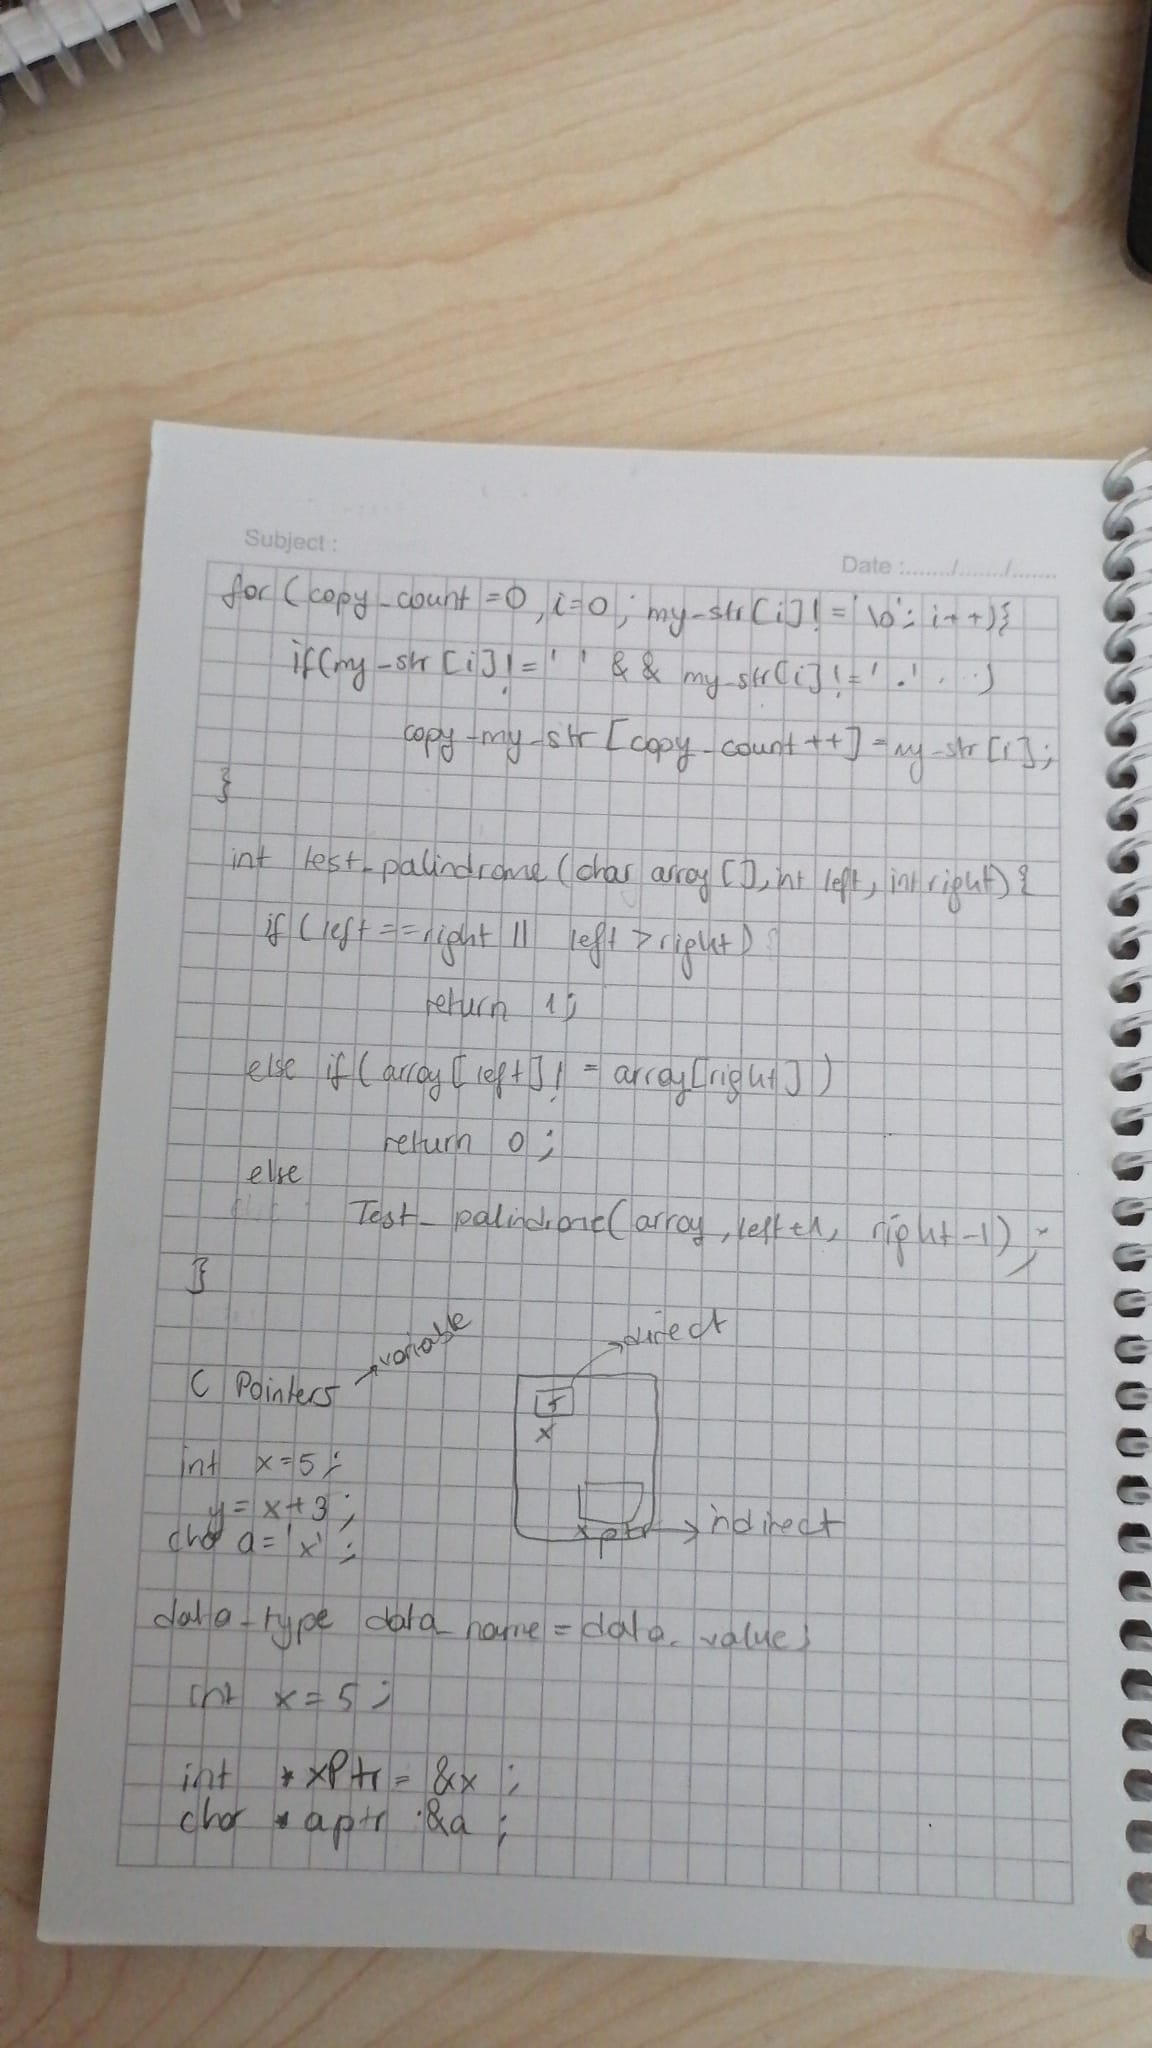 Subject :
Date :......./......./.......
for (copy_count =0, i=0; my-str[i]!='\0'; i++){
if(my-str[i]!=' ' && my-str[i]!='.' . . .)
copy-my-str[copy-count++]=my-str[i];
}
int test_palindrome (char array [], int left, int right) {
if (left ==right || left > right)
return 1;
else if (array[left]! = array[right])
return 0;
else
Test_ palindrome(array, left+1, right-1);
}
C Pointers → variable
direct
5
x
int x=5;
y= x+3;
char a= 'x';
xptr → indirect
data-type data_name = data_value;
int x = 5;
int * xPtr = &x ;
char * aptr &a ;